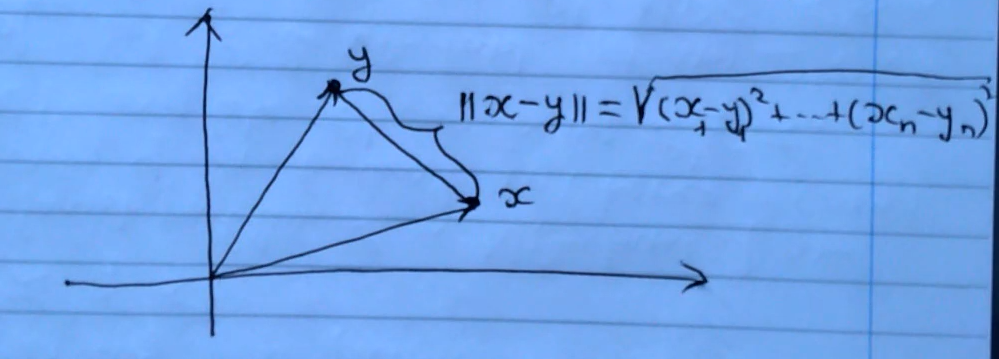 y
||x-y|| = √(x₁-y₁)²+...+(xₙ-yₙ)²
x